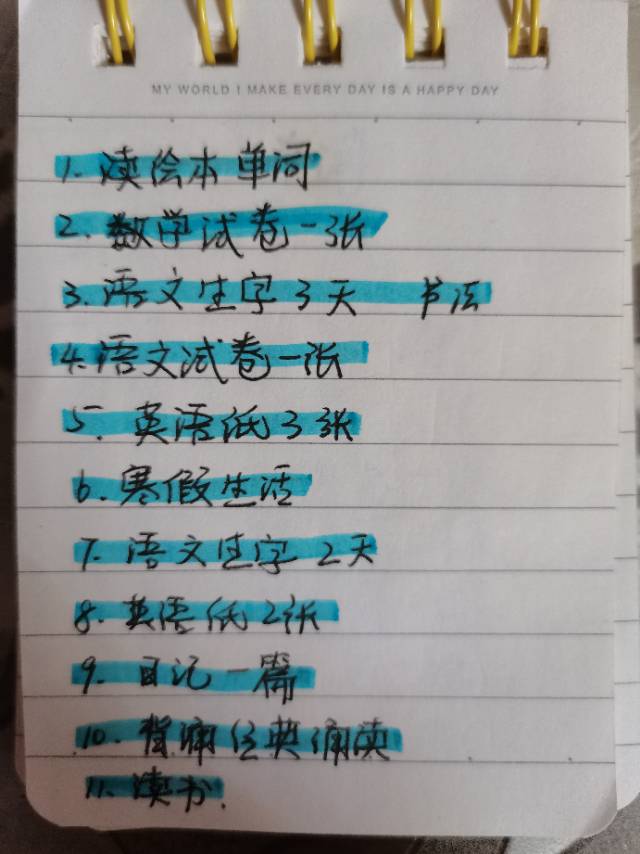 MY WORLD I MAKE EVERY DAY IS A HAPPY DAY
1. 读绘本 单词
2. 数学试卷一张
3. 语文生字3天 书法
4. 语文试卷一张
5. 英语纸3张
6. 寒假生活
7. 语文生字2天
8. 英语纸2张
9. 日记一篇
10. 背诵经典诵读
11. 读书.